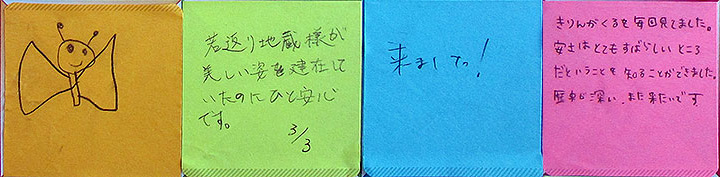 若返り地蔵様が
美しい姿を建在して
いたのにひと安心
です。
3/3
来ましてっ!
きりんがくるを毎回見てました。
安土はとてもすばらしいところ
だということを知ることができました。
歴史が深い、また来たいです